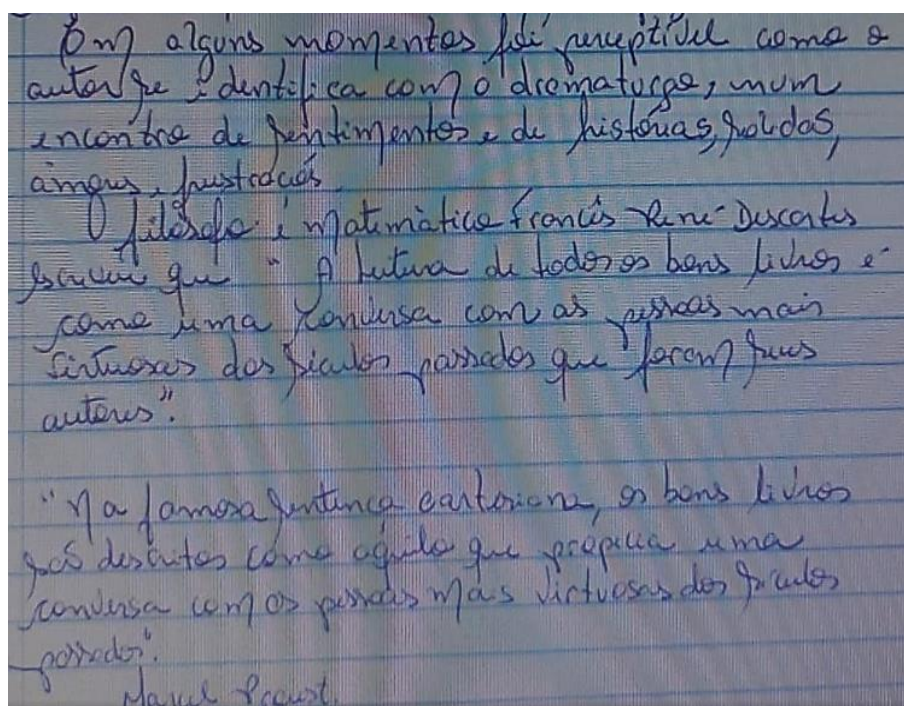 Em alguns momentos foi perceptível como o
autor se identifica com o dramaturgo, num
encontro de sentimentos e de histórias, saídas,
amores, frustrações.
O filósofo e matemático francês René Descartes
escreveu que " A leitura de todos os bons livros é
como uma conversa com as pessoas mais
virtuosas dos séculos passados que foram seus
autores".
"Na famosa sentença cartesiana, os bons livros
são descritos como aquilo que propicia uma
conversa com as pessoas mais virtuosas dos séculos
passados".
Marcel Proust.